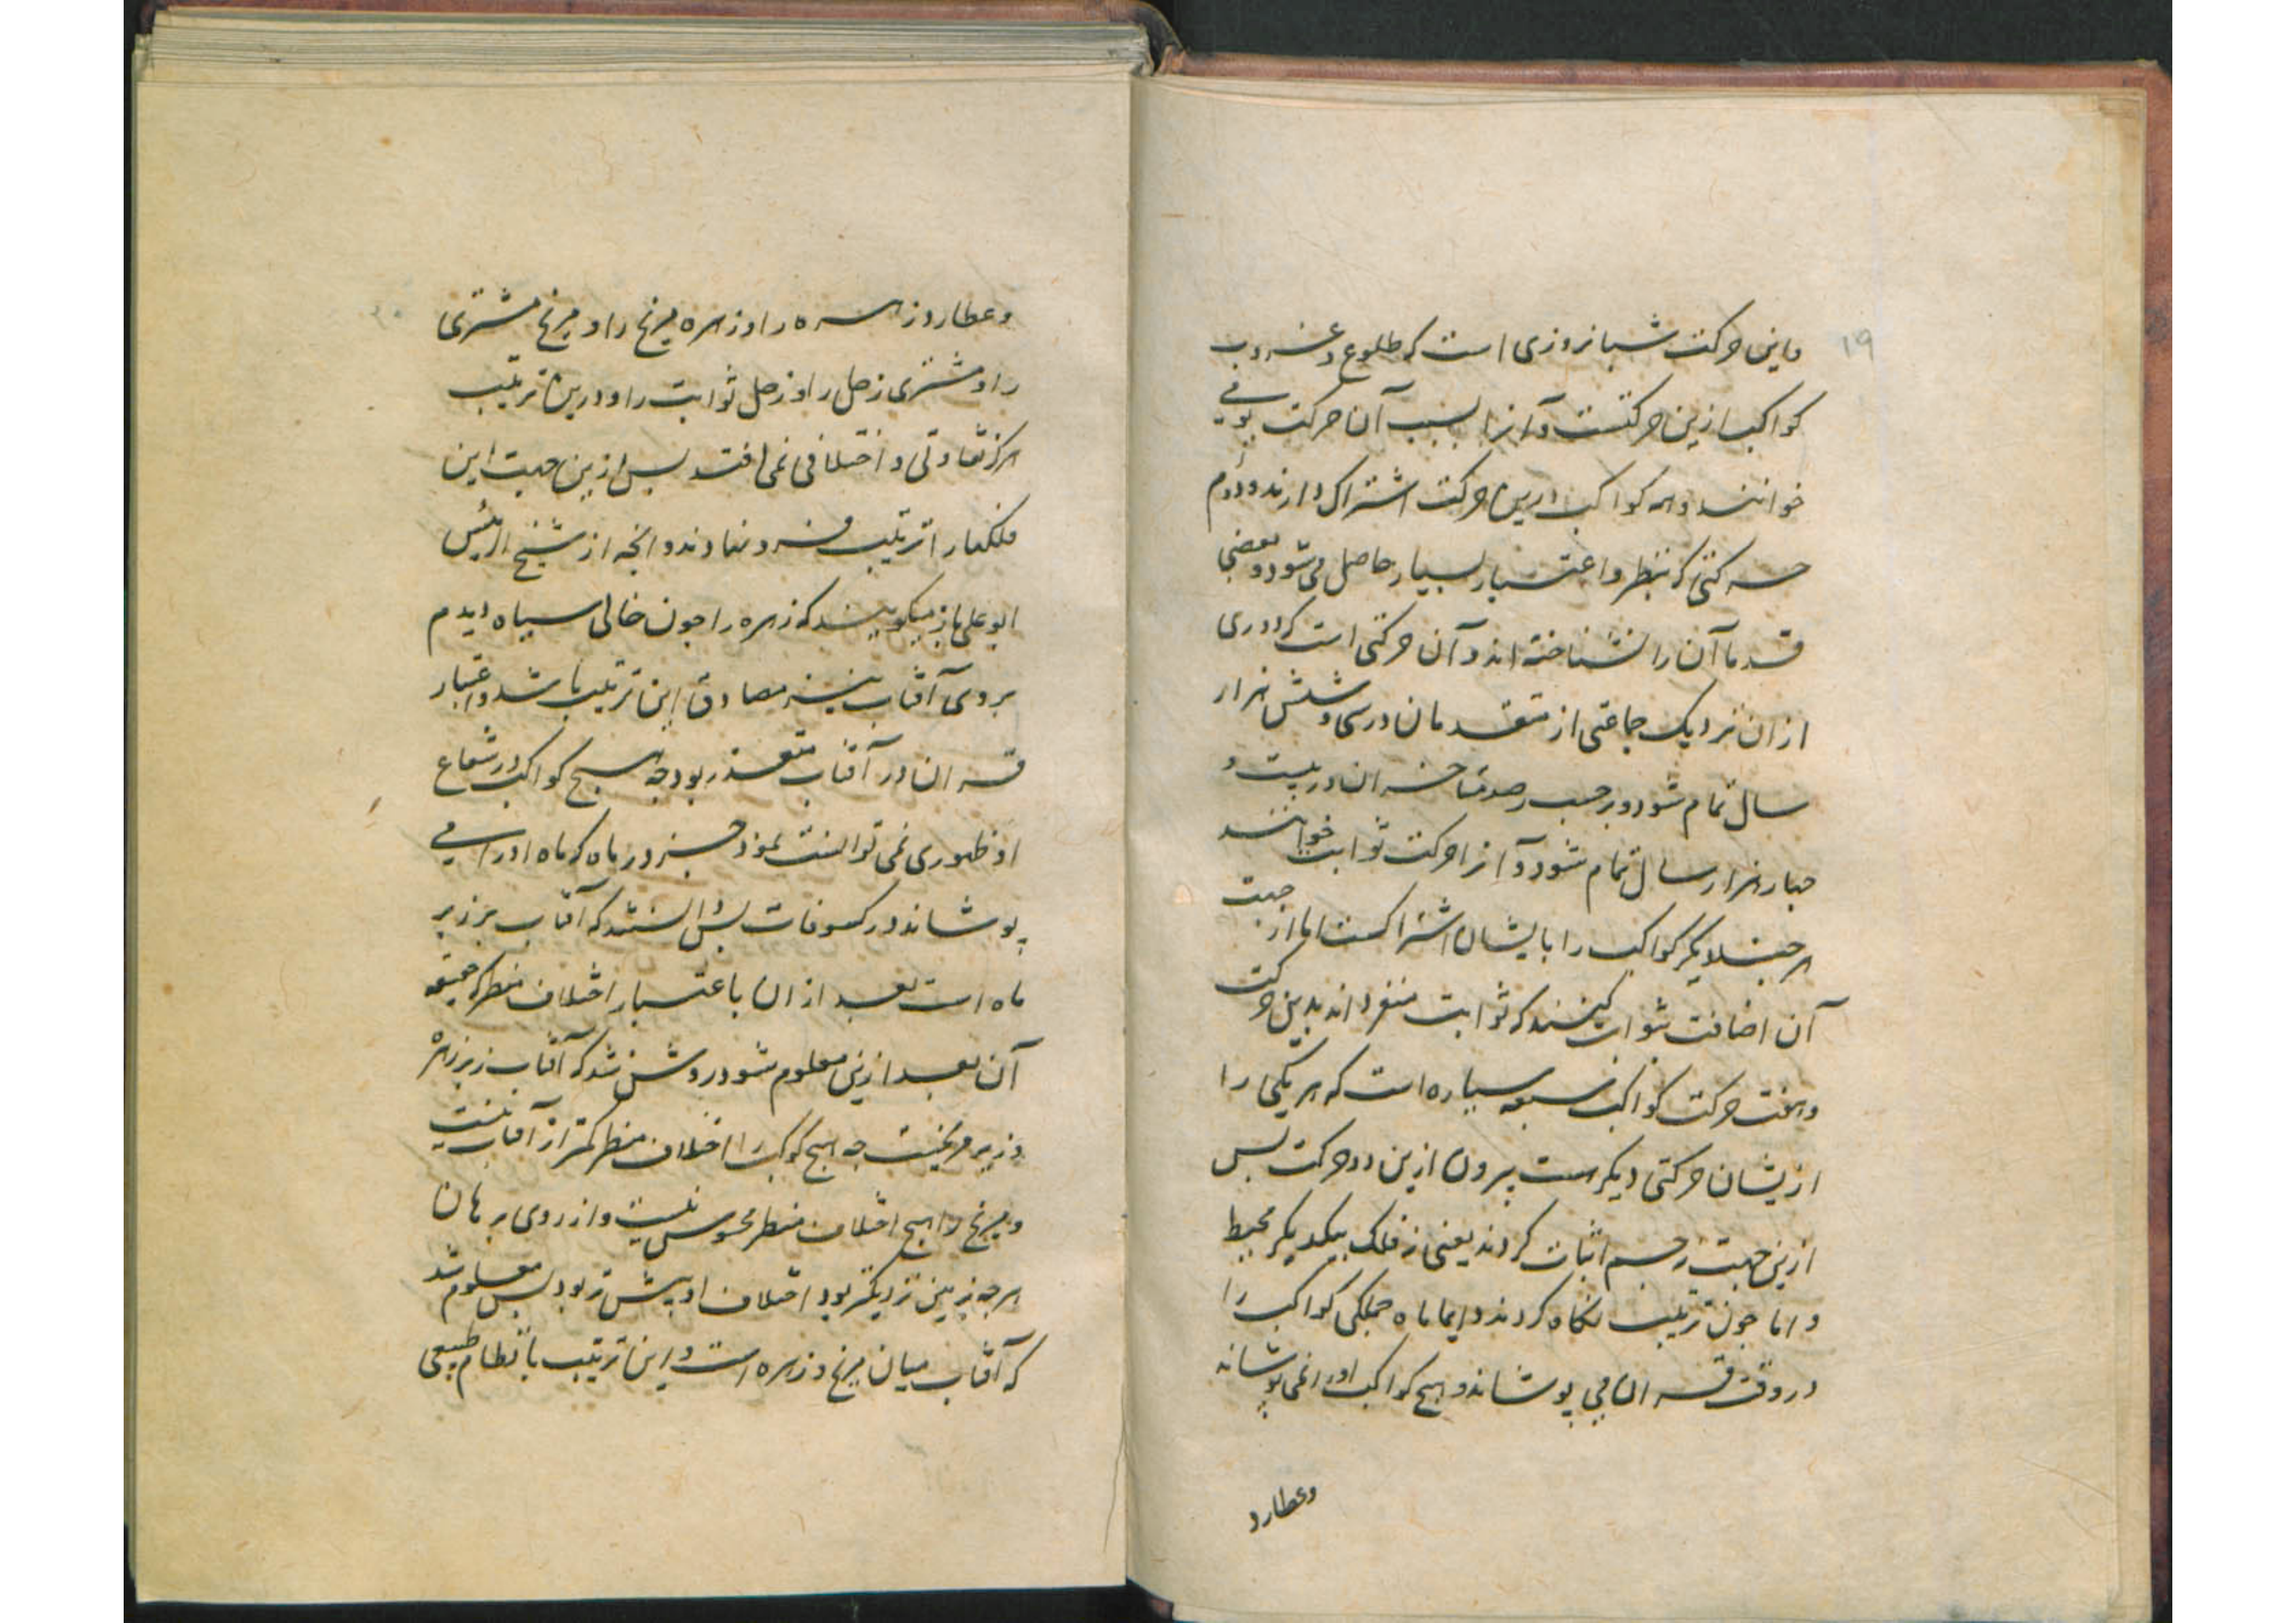 ۱۹
و این حرکت شبانروزی است که طلوع و غروب
کواکب ازین حرکتست و آنرا بسبب آن حرکت یومی
خوانند و همه کواکب درین حرکت اشتراک دارند و دوم
حرکتی که بنظر و اعتبار بسیار حاصل می شود و بعضی
قدما آن را نشناخته اند و آن حرکتی است که دوری
از ان نزدیک جماعتی از متقدمان در سی و شش هزار
سال تمام شود و بر حسب رصد متاخران در بیست و
چهار هزار سال تمام شود و آنرا حرکت ثوابت خوانند
هر چند دیگر کواکب را با یشان اشتراکست اما از جهت
آن اضافت بثوابت کنند که ثوابت منفرد اند بدین حرکت
و هفت حرکت کواکب سبعه سیاره است که هر یکی را
ازیشان حرکتی دیگرست بیرون ازین دو حرکت پس
ازین جهت جسم اثبات کردند یعنی نه فلک بیکدیگر محیط
و اما چون ترتیب نگاه کردند دایما ماه جملگی کواکب را
در وقت قران می پوشاند و هیچ کواکب او را نمی پوشاند
وعطارد
و عطارد زهره را و زهره مریخ را و مریخ مشتری
را و مشتری زحل را و زحل ثوابت را و درین ترتیب
هرگز تفاوتی و اختلافی نمی افتد پس ازین جهت این
فلکها را ترتیب فرو نهادند و انچه از شیخ الرئیس
ابو علی باز میگویند که زهره را چون خالی سیاه دیدم
بر روی آفتاب نیز مصادق این ترتیب باشد و اعتبار
قران در آفتاب متعذر بود چه هیچ کواکب در شعاع
او ظهوری نمی توانست نمود جز در ماه که ماه او را می
پوشاند در کسوفات پس دانستند که آفتاب بر زبر
ماه است بعد از ان باعتبار اختلاف منظر که حقیقه
آن بعد ازین معلوم شود روشن شد که آفتاب زبر زهره
و زیر مریخست چه هیچ کوکب را اختلاف منظر کمتر از آفتاب نیست
و مریخ را هیچ اختلاف منظر محسوس نیست و از روی برهان
هر چه بزمین نزدیکتر بود اختلاف او بیشتر بود پس معلوم شد
که آفتاب میان مریخ و زهره است و این ترتیب با نظام طبیعی